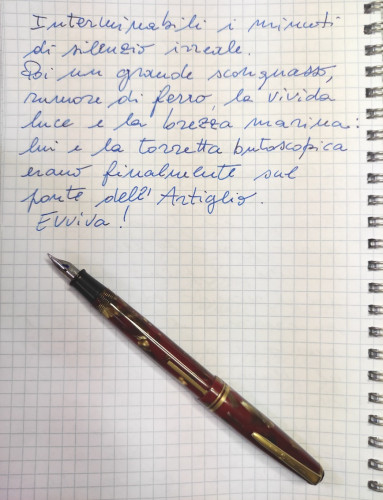 Interminabili i minuti
di silenzio irreale.
Poi un grande sconquasso,
rumore di ferro, la vivida
luce e la brezza marina:
lui e la torretta butoscopica
erano finalmente sul
ponte dell'Artiglio.
Evviva!